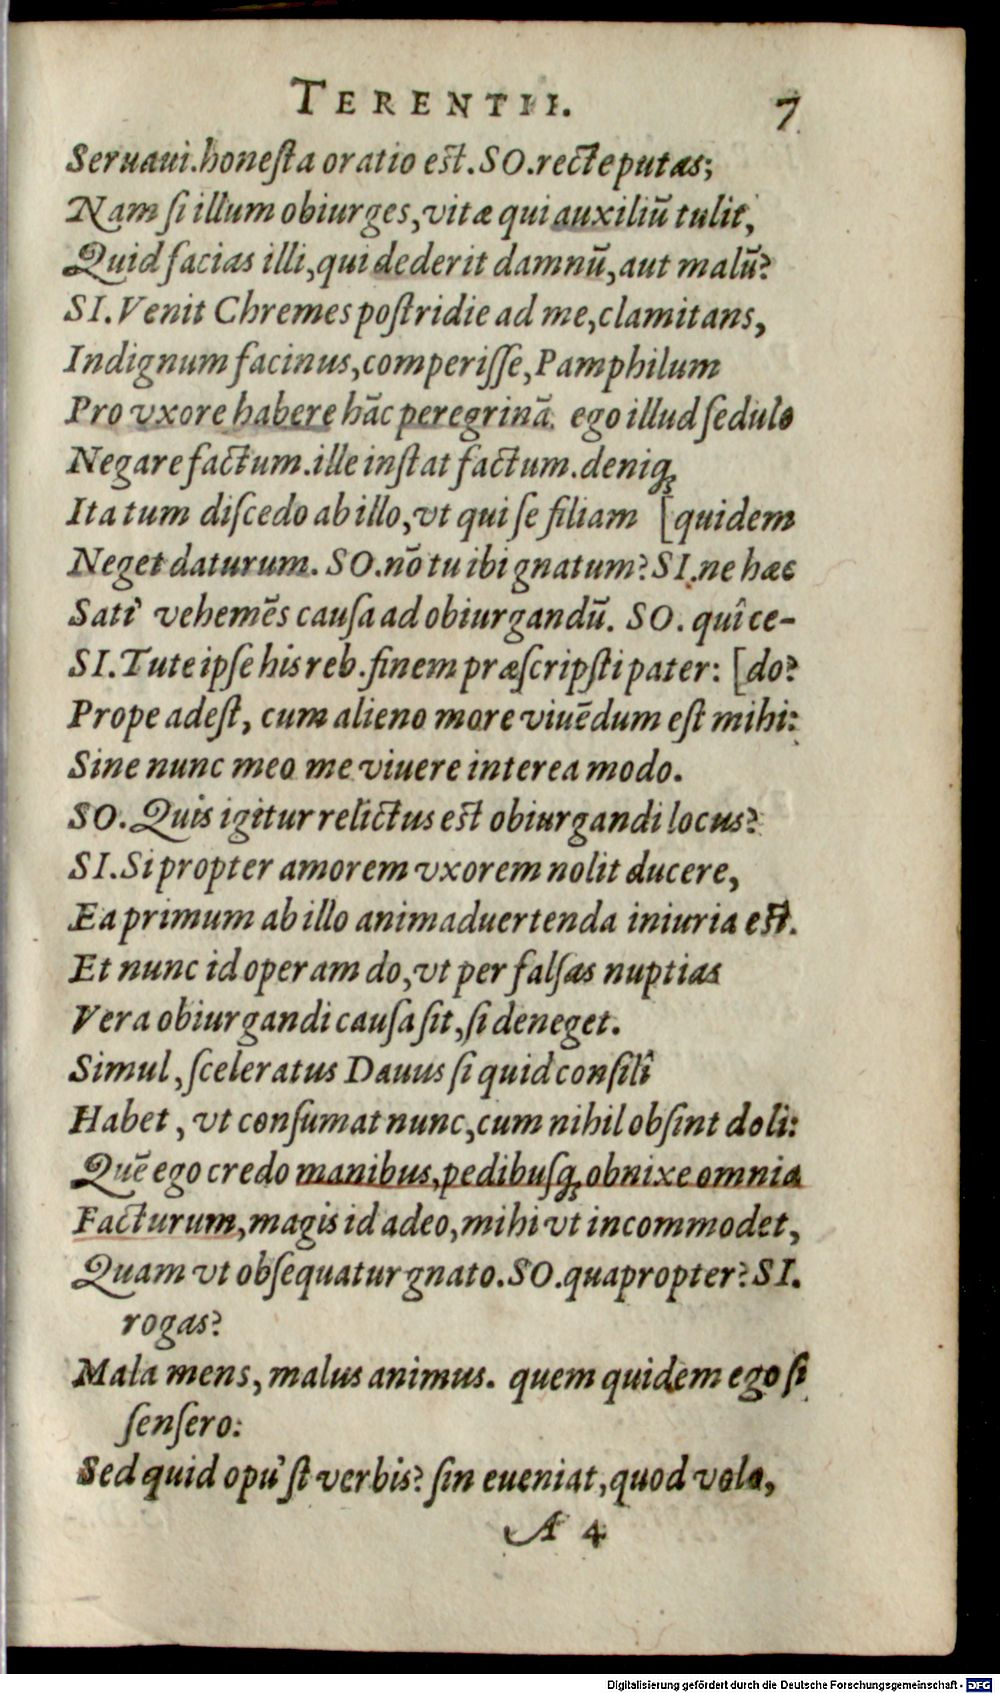 TERENTII. 7
Seruaui.honeſta oratio eſt. SO.recte putas;
Nam ſi illum obiurges, vitæ qui auxiliũ tulit,
Quid facias illi, qui dederit damnũ, aut malũ?
SI. Venit Chremes poſtridie ad me, clamitans,
Indignum facinus, comperiſſe, Pamphilum
Pro vxore habere hãc peregrinã. ego illud ſedulo
Negare factum. ille inſtat factum. deniq;
Ita tum diſcedo ab illo, vt qui ſe filiam [quidem
Neget daturum. SO. nõ tu ibi gnatum? SI. ne hæc
Sati' vehemẽs cauſa ad obiurgandũ. SO. quî ce-
SI. Tute ipſe his reb. finem præſcripſti pater: [do?
Prope adeſt, cum alieno more viuẽdum eſt mihi:
Sine nunc meo me viuere interea modo.
SO. Quis igitur relictus eſt obiurgandi locus?
SI. Si propter amorem vxorem nolit ducere,
Ea primum ab illo animaduertenda iniuria eſt.
Et nunc id operam do, vt per falſas nuptias
Vera obiurgandi cauſa ſit, ſi deneget.
Simul, ſceleratus Dauus ſi quid conſilî
Habet, vt conſumat nunc, cum nihil obſint doli:
Quẽ ego credo manibus, pedibuſq; obnixe omnia
Facturum, magis id adeo, mihi vt incommodet,
Quam vt obſequatur gnato. SO. quapropter? SI.
rogas?
Mala mens, malus animus. quem quidem ego ſi
ſenſero:
Sed quid opu' ſt verbis? ſin eueniat, quod volo,
A 4
Digitalisierung gefördert durch die Deutsche Forschungsgemeinschaft - DFG